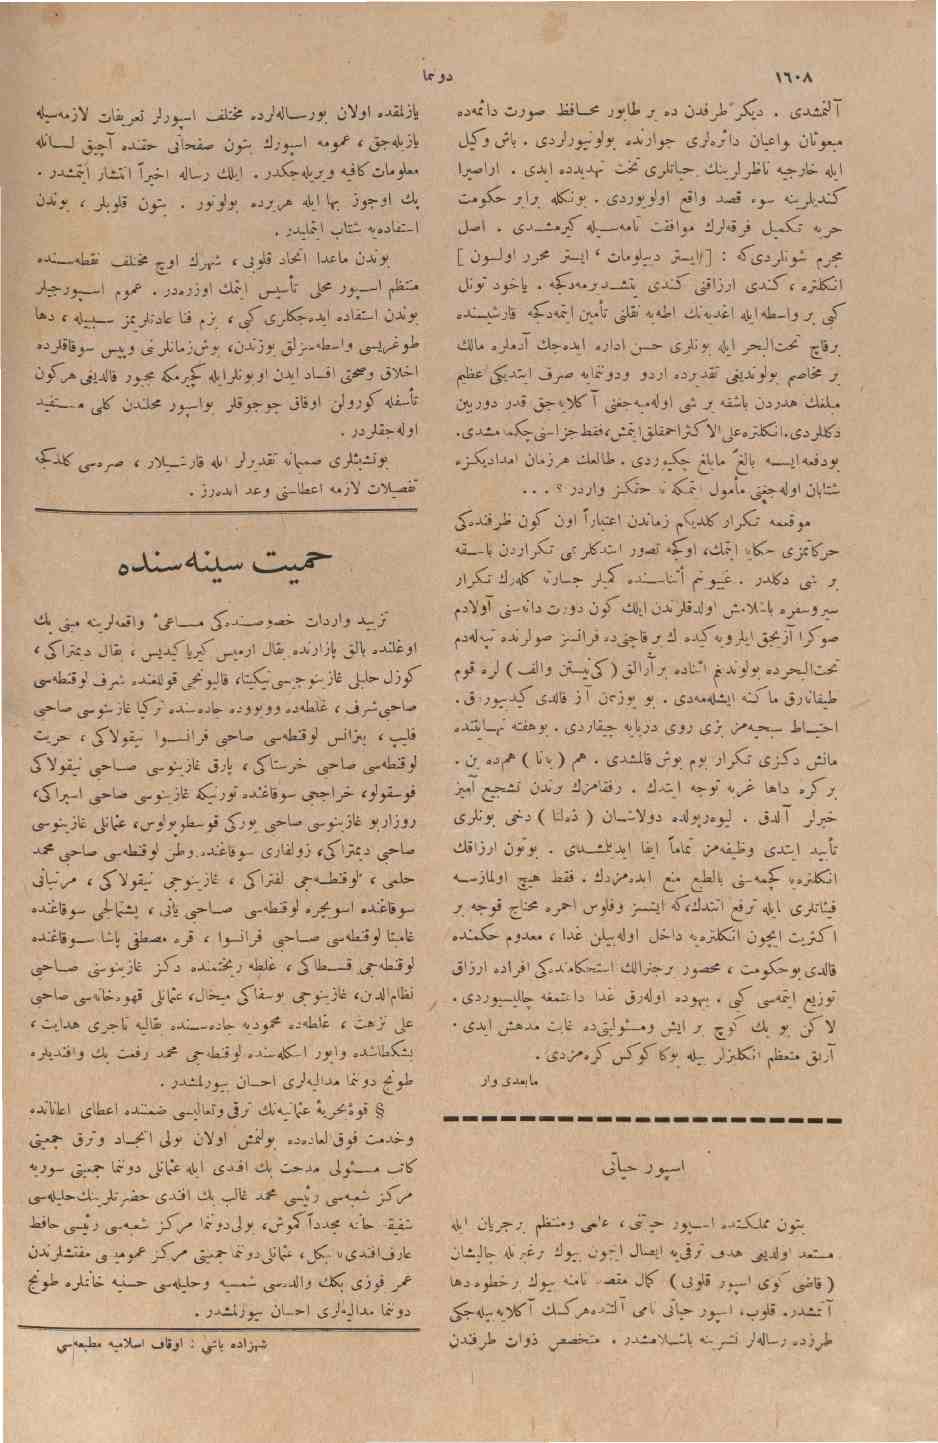 ١٦٠٨
دونما
آلنمشدی . دیكر طرفدن ده بر طابور محافظ صورت دائمه‌ده
مبعوثان واعیان دائره‌لری جوارنده بولونیورلردی . باش وكیل
ایله خارجیه ناظرلرینك حیاتلری تحت تهدیدده ایدی . اراصیرا
كندیلرینه سوء قصد واقع اولویوردی . بونكله برابر حكومت
حربه تكمیل فرقه‌لرك موافقت نامه‌سیله كیرمشدی . اصل
مجرم شونلردی‌كه : [ ایستر دیپلومات ، ایستر محرر اولسون ]
انكلتره ، كندی ارزاقنی كندی یتشدیرمه‌دكجه . یاخود تونل
كبی بر واسطه‌ایله اغدیه‌نك اطه‌یه نقلنی تأمین ایتمه‌دكجه قارشیسنده
برقاچ تحت‌البحر ایله بونلری حسن اداره ایده‌جك آدملره مالك
بر مخاصم بولوندیغی تقدیرده اردو ودونمایه صرف ایتدیكی عظیم
مبلغك هدردن باشقه بر شی اوله‌میه‌جغنی آكلایه‌جق قدر دوربین
دكللردی. انكلتره علی‌الاكثر احمقلق ایتمش، فقط جزاسنی چكمه‌مشدی.
بودفعه ایسه بالغ مابلغ چكیوردی . طالعك هرزمان امدادیكزه
شتابان اوله‌جغنی مأمول ایتمكه نه حقكز واردر ؟ . . .
موقعمه تكرار كلدیكم زماندن اعتباراً اون كون ظرفنده‌كی
حركاتمزی حكایه ایتمك، اولجه تصور ایتدكلریمی تكراردن باشقه
بر شی دكلدر . غیبوبتم أثناسنده كمیلر جسارته كله‌رك تكرار
سیروسفره باشلامش اولدقلرندن ایلك كون دورت دانه‌سنی آولادم
صوكرا آزیجق ایلرویه كیده‌رك برقاچنی‌ده فرانسز صولرنده تپه‌له‌دم
تحت‌البحرده بولوندیغم اثناده بر آرالق ( كی‌نیستن والف ) لره قوم
طیقانه‌رق ماكنه ایشله‌مه‌دی . بو یوزدن آز قالدی كیدییوردق .
احتیاط سبحیه‌مز بزی روی دریایه چیقاردی . بوهفته نهایتنده
مانش دكزی تكرار بوم بوش قالمشدی . هم ( یوتا ) هم‌ده بن .
بر كره داها غربه توجه ایتدك . رفقامزك برندن تشجیع آمیز
خبرلر آلدق . لیوه‌رپولده دولاشان ( ده‌لتا ) دخی بونلری
تأیید ایتدی وظیفه‌مز تماماً ایفا ایدیلمشدی . بوتون ارزاقك
انكلتره‌یه كچمه‌سنی بالطبع منع ایده‌مزدك . فقط هیچ اولمازسه
فیئاتلری ایله ترفع ایتدك، كه ایشسز وفلوس احمره محتاج قوجه بر
اكثریت ایچون انكلتره‌یه داخل اوله‌بیلن غدا ، معدوم حكمنده
قالدی بوحكومت ، محصور بر جنرالك استحكامنده‌كی افراده ارزاق
توزیع ایتمه‌سی كبی . بیهوده اوله‌رق غدا داغیتمغه چالیشیوردی .
لاكن بو پك كوچ بر ایش ومسئولیتی‌ده غایت مدهش ایدی .
آرتق متعظم انكلیزلر بیله بوكا كوكس كره‌مزدی .
مابعدی وار
اسپور حیاتی
بتون مملكتده اسپور حیاتی ، علمی ومنتظم برجریان ایله
مستعد اولدیغی هدف ترقی‌یه ایصال ایچون بیوك برغیرتله چالیشان
( قاضی كوی اسپور قلوبی ) كمال مقصد نامنه بیوك بر خطوه دها
آتمشدر. قلوب، اسپور حیاتی نامی آلتنده هركسك آكلایه‌بیله‌جكی
طرزده رساله‌لر نشرینه باشلامشدر . متخصص ذوات طرفندن
یازلمقده اولان بورساله‌لرده مختلف اسپورلر تعریفات لازمه‌سیله
یازیله‌جق ، عمومه اسپورك بتون صفحاتی حقنده آچیق لسانله
معلومات كافیه ویریله‌جكدر . ایلك رساله اخیراً انتشار ایتمشدر .
پك اوجوز بها ایله هریرده بولونور . بتون قلوبلر ، بوندن
استفاده‌یه شتاب ایتملیدر .
بوندن ماعدا اتحاد قلوبی ، شهرك اوچ مختلف نقطه‌سنده
منتظم اسپور محلی تأسیس ایتمك اوزره‌در . عموم اسپورجیلر
بوندن استفاده ایده‌جكلری كبی ، بزم فنا عادتلریمز سببیله ، دها
طوغریسی واسطه‌سزلق یوزندن، بوش‌زمانلرنی وپیس سوقاقلرده
اخلاق وصحتی افساد ایدن اویونلرایله كچیرمكه مجبور قالدیغی هركون
تأسفله كورولن اوفاق جوجوقلر بواسپور محللندن كلی مستفید
اوله‌جقلردر .
بوتشبثلری صمیمانه تقدیرلر ایله قارشیلار ، صره‌سی كلدكجه
تفصیلات لازمه اعطاسنی وعد ایده‌رز .
حمیت سینه‌سنده
تزیید واردات خصوصنده‌كی مساعیٔ واقعه‌لرینه مبنی بك
اوغلنده بالق پازارنده بقال ارمیس كیریاكیدیس ، بقال دیمتراكی ،
كوزل حلبلی غازینوجیسی نیكیتا، قالیونجی قوللغنده شرف لوقنطه‌سی
صاحبی‌شرف ، غلطه‌ده وویووده جاده‌سنده تركیا غازینوسی صاحبی
فلیپ ، بیزانس لوقنطه‌سی صاحبی فرانسوا نیقولاكی ، حریت
لوقنطه‌سی صاحبی خرستاكی ، پارق غازینوسی صاحبی نیقولاكی
فوسقولو، خراجچی سوقاغنده تورنیكه غازینوسی صاحبی اسپراكی،
روزاریو غازینوسی صاحبی یوركی قوسطوپولوس، عثمانلی غازینوسی
صاحبی دیمتراكی، زولفاری سوقاغنده وطن لوقنطه‌سی صاحبی محمد
حلمی ، لوقنطه‌جی لفتراكی ، غازینوجی نیقولاكی ، مرتبانی
سوقاغنده اسویچره لوقنطه‌سی صاحبی یانی ، پشتمالجی سوقاغنده
غامبتا لوقنطه‌سی صاحبی فرانسوا ، قره مصطفی پاشا سوقاغنده
لوقنطه‌جی قسطاكی ، غلطه ریختمنده دكز غازینوسی صاحبی
نظام‌الدین، غازینوجی یوسفاكی میخال، عثمانلی قهوه‌خانه‌سی صاحبی
علی نزهت ، غلطه‌ده محمودیه جاده‌سنده بقالیه تاجری هدایت ،
بشكطاشده واپور اسكله‌سنده لوقنطه‌جی محمد رفعت بك وافندیلره
طونج دونما مدالیه‌لری احسان بیورلمشدر .
§ قوۀ بحریۀ عثمانیه‌نك ترقی وتعالیسی ضمننده اعطای اعاناتده
وخدمت فوق‌العاده‌ده بولنمش اولان بولی اتحاد وترقی جمعیتی
كاتب مسئولی مدحت بك افندی ایله عثمانلی دونما جمعیتی سوریه
مركز شعبه‌سی رئیسی محمد غالب بك افندی حضرتلرینك حلیله‌سی
شفیقه خانمه مجدداً كموش، بولی دونما مركز شعبه‌سی رئیسی حافظ
عارف‌افندی‌یه نیكل ، عثمانلی دونما جمعیتی مركز عمومیسی مفتشلرندن
عمر فوزی بكك والده‌سی شمسیه وحلیله‌سی حسنیه خانملره طونج
دونما مدالیه‌لری احسان بیورلمشدر .
شهزاده باشی : اوقاف اسلامیه مطبعه‌سی